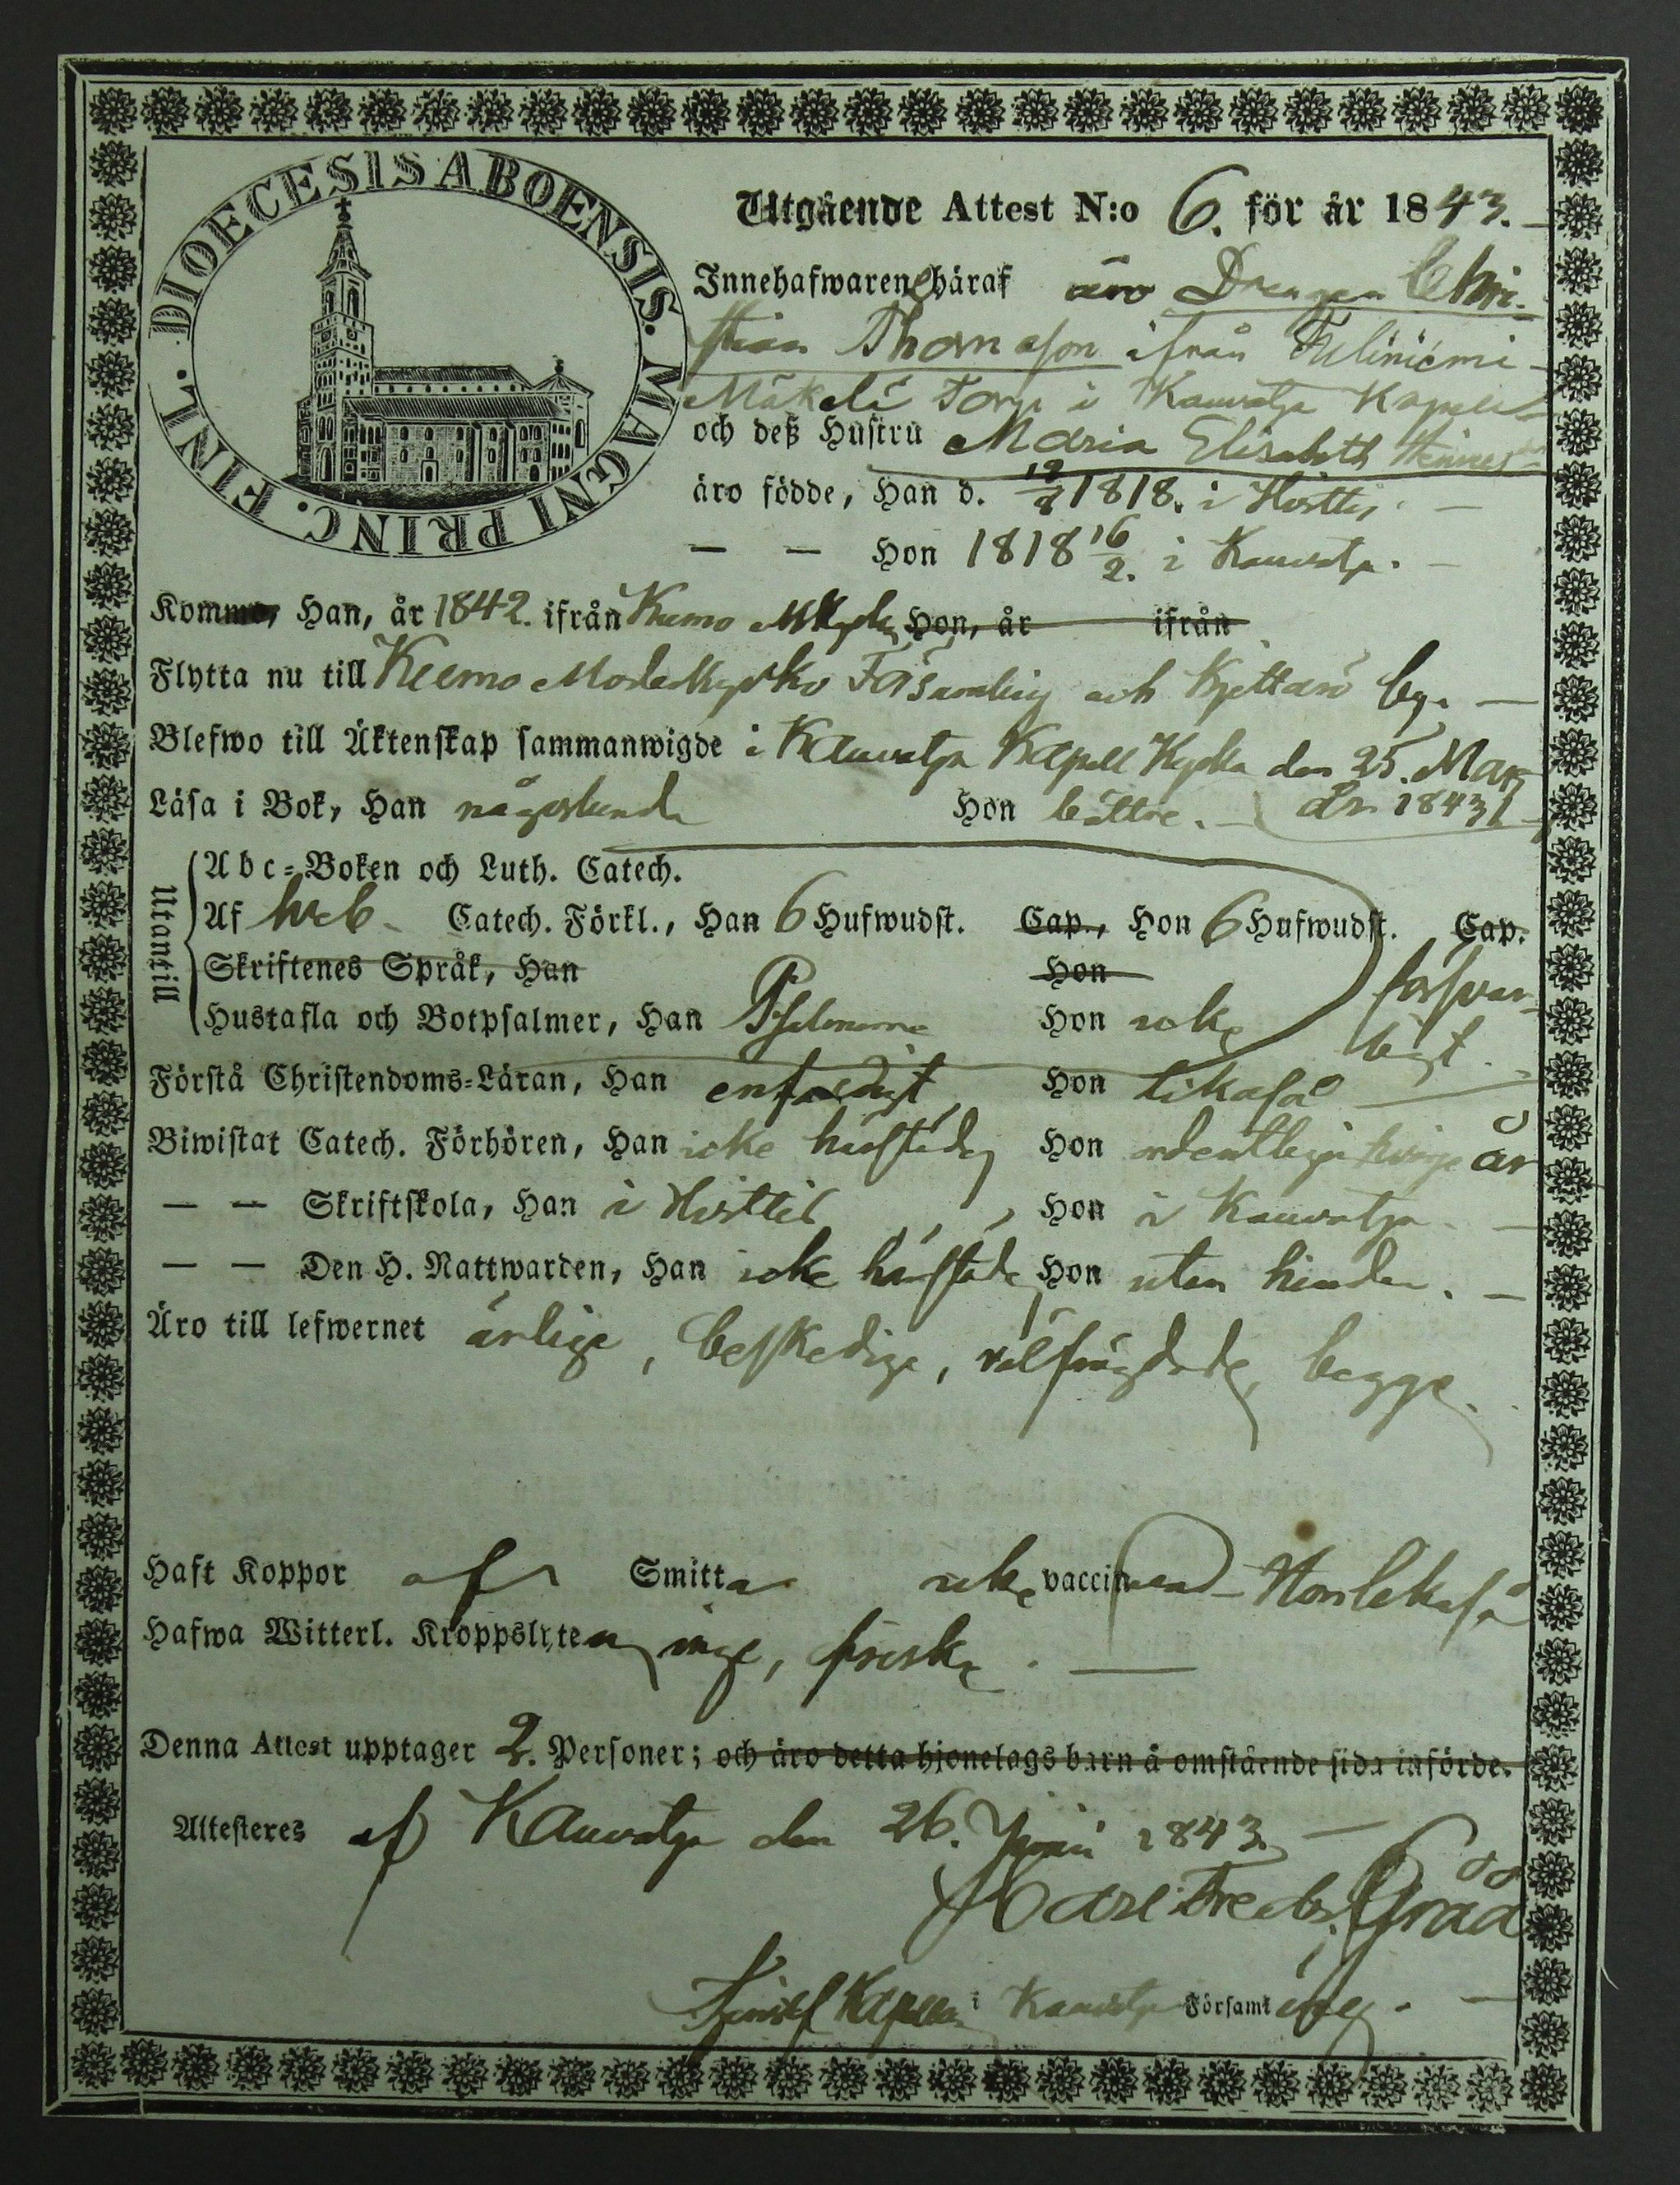 DIOECESIS ABOENSIS. MAGNI PRINC. FINL.
Utgående Attest N:o 6. för år 1843.
Innehafwaren häraf äro Drengen Chri-
stian Thomasson ifrån
Mäkelä Torp i Kauvatsa Kapell
och deß Hustru Maria Elisabeth
äro födde, Han d. 19/8 1818. i
— — Hon 1818 16/2. i Kauvatsa.
Komme, Han, år 1842. ifrån Kumo Hon, år ifrån
Flytta nu till Kumo Moderkyrko Församling och by.
Blefwo till Äktenskap sammanwigde i Kauvatsa Kapell Kyrka den 25. Mars
Läsa i Bok, Han någorlunda Hon bättre. år 1843
Utantill
Abc-Boken och Luth. Catech.
Af Catech. Förkl., Han 6 Hufwudst. Cap., Hon 6 Hufwudst. Cap.
Skriftenes Språk, Han Hon
Hustafla och Botpsalmer, Han Psalmerne Hon icke försvar-
ligt.
Förstå Christendoms-Läran, Han enfaldigt Hon likaså
Biwistat Catech. Förhören, Han icke härstädes Hon ordentligen hvarje år
— — Skriftskola, Han i Hon i Kauvatsa.
— — Den H. Nattwarden, Han icke härstädes Hon utan hinder.
Äro till lefwernet ärlige, beskedlige, välfrägdade, begge.
Haft Koppor af Smitta icke vaccinerad Hon likaså
Hafwa Witterl. Kroppslyten inge, friske.
Denna Attest upptager 2. Personer; och äro detta hjonelags barn å omstående sida införde.
Attesteres af Kauvatsa den 26. Junii 1843.
Karl Fredr. Gråå
Kapellan i Kauvatsa Församling.